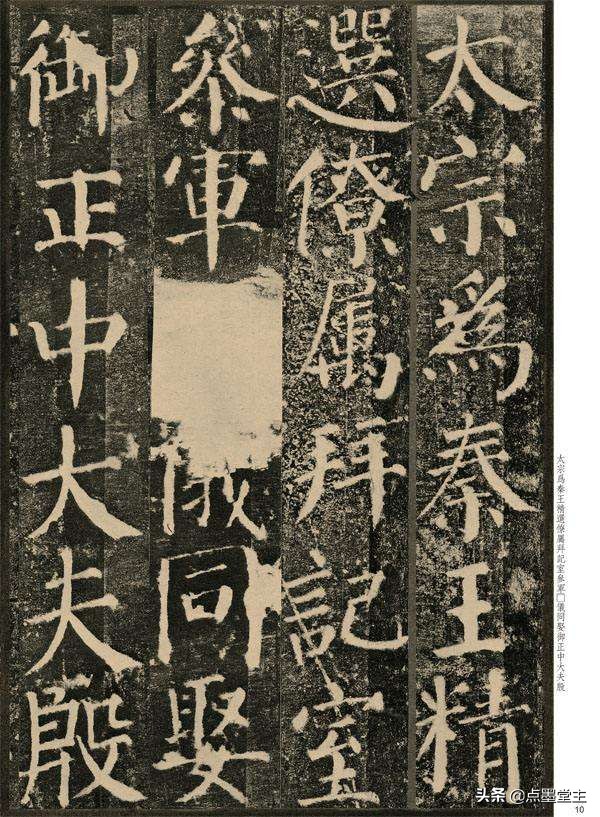 太宗爲秦王精
選僚屬拜記室
叅軍儀同娶
御正中大夫殷
太宗爲秦王精選僚屬拜記室叅軍□儀同娶御正中大夫殷
头条 @点墨堂主
10